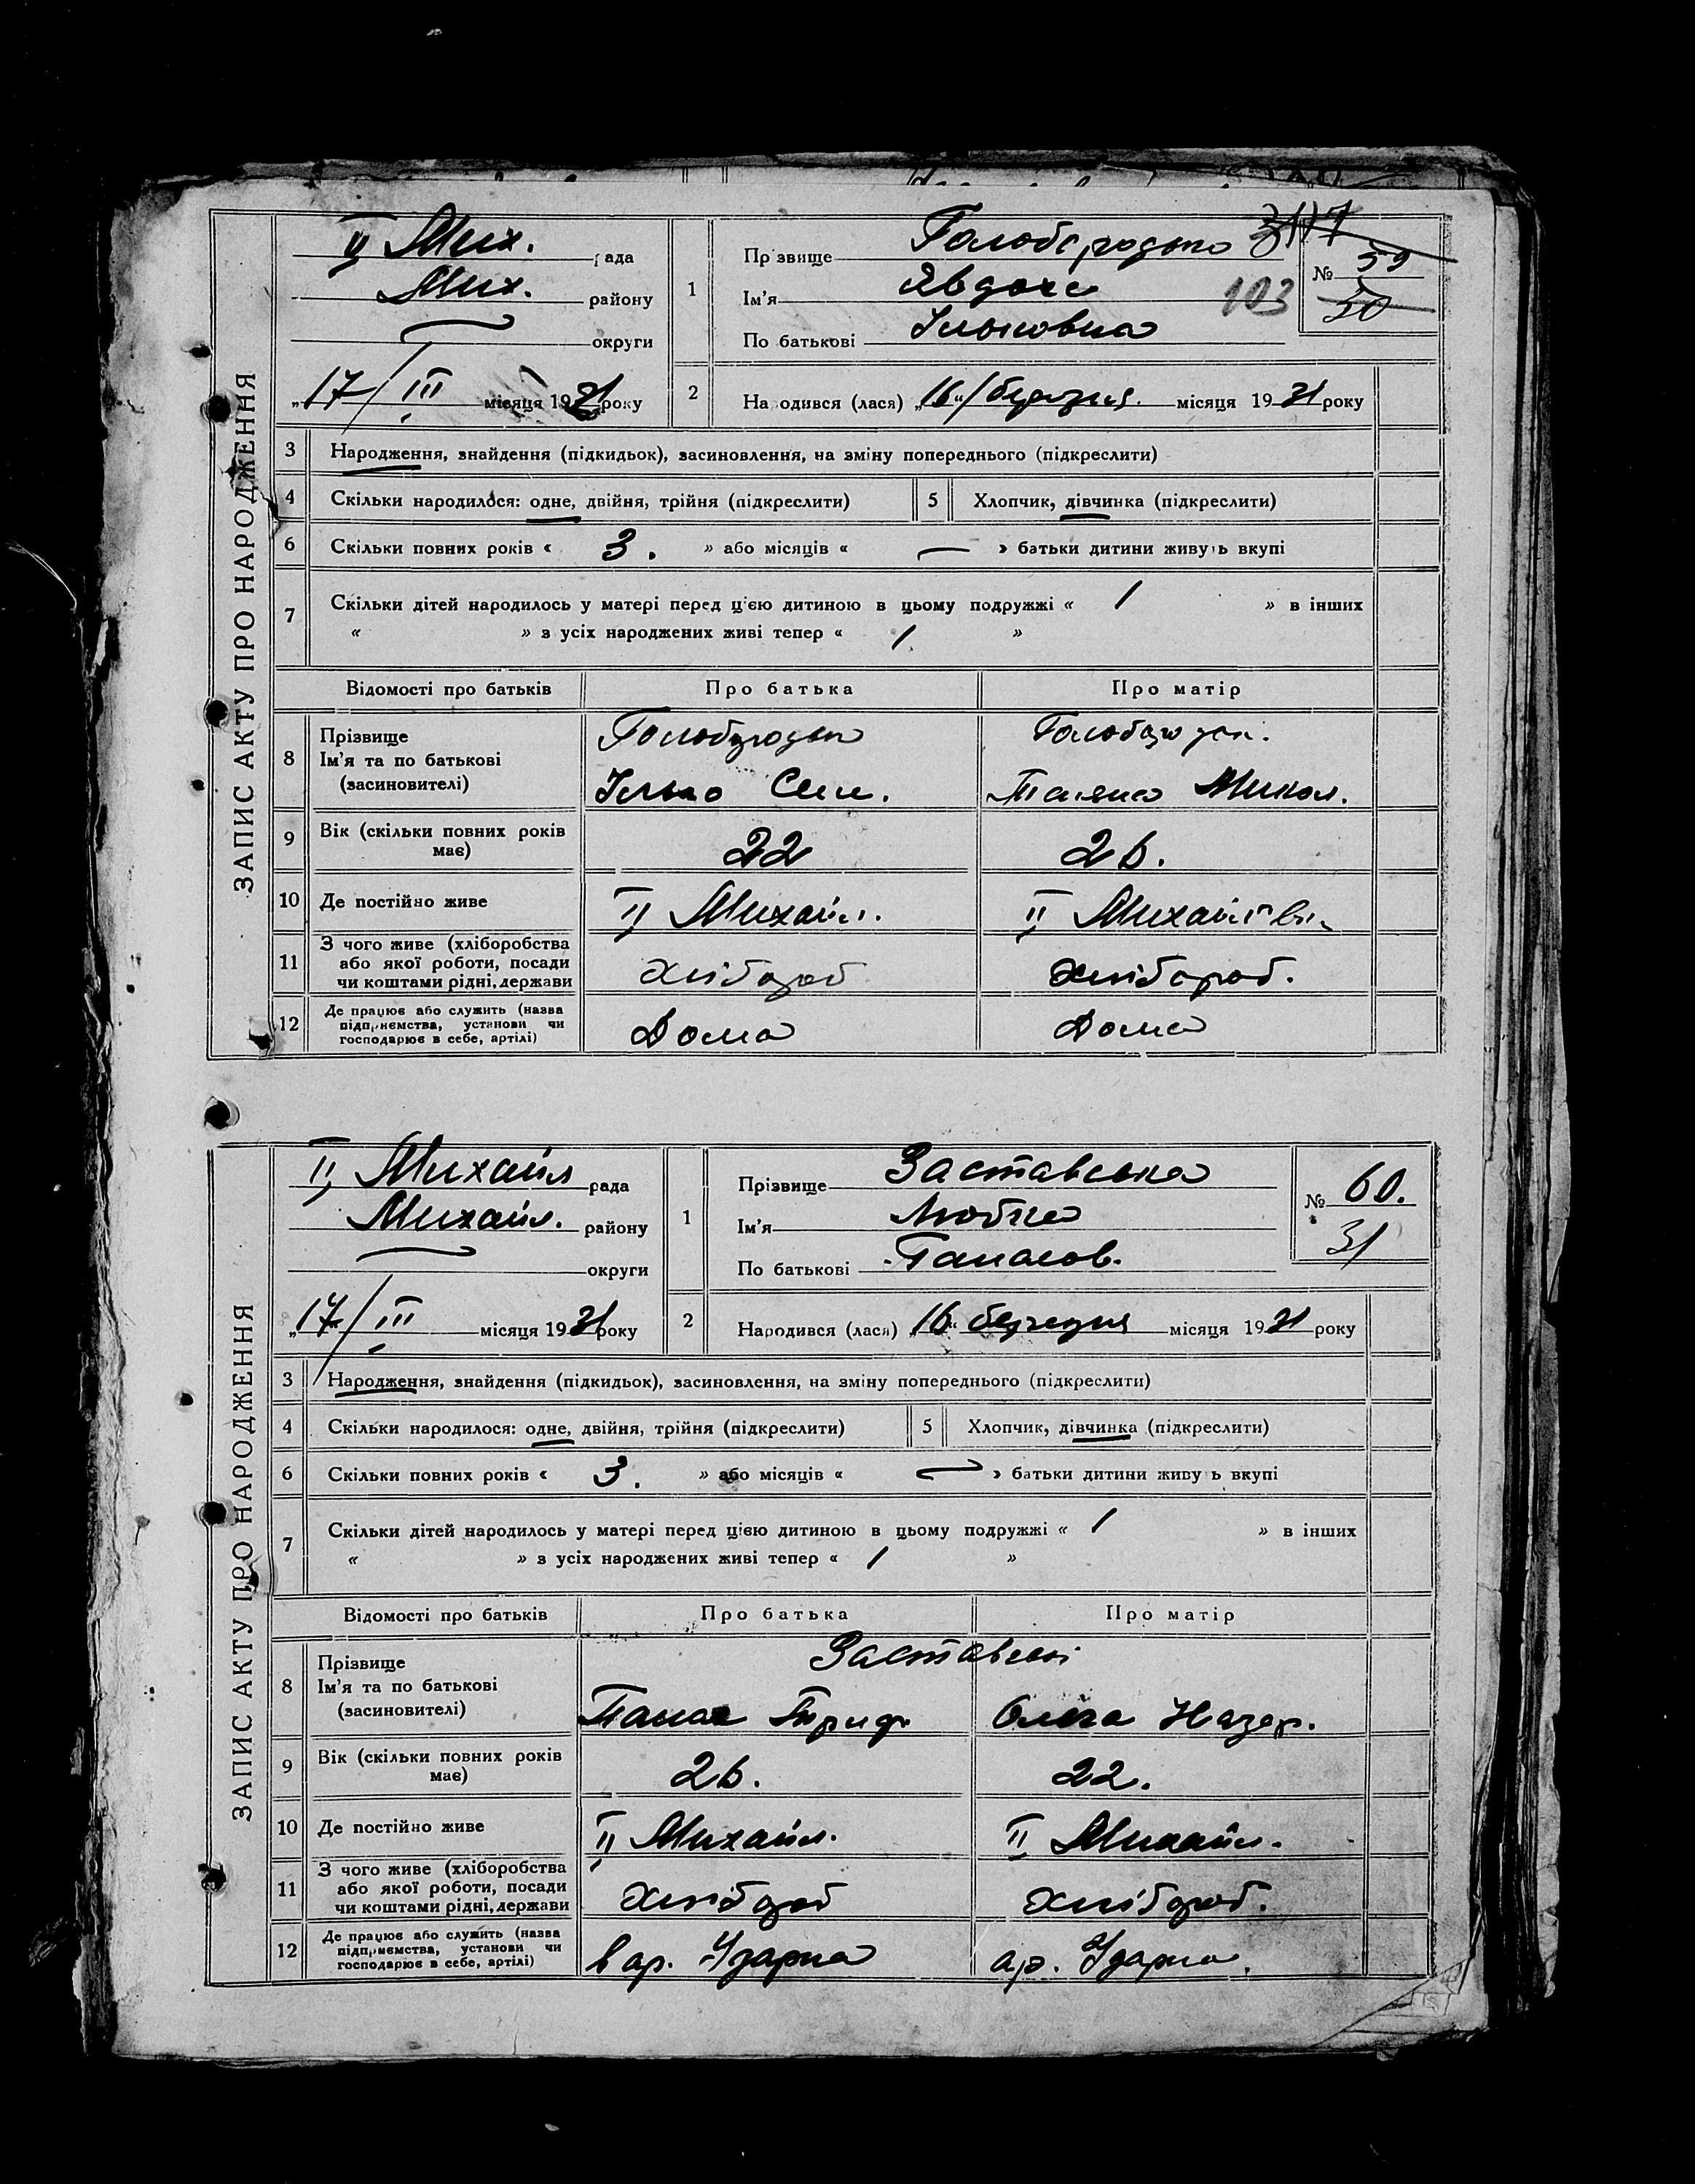 ЗАПИС АКТУ ПРО НАРОДЖЕННЯ
ІІ Мих. рада
Мих. району
округи
„17/ІІІ місяця 1931 року
1
Прізвище Голобородько
Ім'я Явдоха
По батькові Ільковна
103
№ 59
30
2 Народився (лася) „16“ березня місяця 1931 року
3 Народження, знайдення (підкидьок), засиновлення, на зміну попереднього (підкреслити)
4 Скільки народилося: одне, двійня, трійня (підкреслити) 5 Хлопчик, дівчинка (підкреслити)
6 Скільки повних років « 3. » або місяців « — » батьки дитини живуть вкупі
7 Скільки дітей народилось у матері перед цією дитиною в цьому подружжі « 1 » в інших
« » з усіх народжених живі тепер « 1. »
Відомості про батьків Про батька Про матір
8 Прізвище Голобородько
Ім'я та по батькові
(засновителі) Ілько Сем. Тетяна Микол.
9 Вік (скільки повних років має) 22 26.
10 Де постійно живе ІІ Михайл. ІІ Михайлівк
11 З чого живе (хліборобства
або якої роботи, посади
чи коштами рідні, держави Хлібороб Хлібороб.
12 Де працює або служить (назва
підприємства, установи чи
господарює в себе, артілі) Дома Дома
ЗАПИС АКТУ ПРО НАРОДЖЕННЯ
ІІ Михайл рада
Михайл. району
округи
„17/ІІІ місяця 1931 року
1
Прізвище Заставська
Ім'я Любка
По батькові Панасов.
№ 60.
31
2 Народився (лася) „16“ березня місяця 1931 року
3 Народження, знайдення (підкидьок), засиновлення, на зміну попереднього (підкреслити)
4 Скільки народилося: одне, двійня, трійня (підкреслити) 5 Хлопчик, дівчинка (підкреслити)
6 Скільки повних років « 3. » або місяців « — » батьки дитини живуть вкупі
7 Скільки дітей народилось у матері перед цією дитиною в цьому подружжі « 1 » в інших
« » з усіх народжених живі тепер « 1 »
Відомості про батьків Про батька Про матір
8 Прізвище Заставські
Ім'я та по батькові
(засиновителі) Панас Триф. Ольга Назар.
9 Вік (скільки повних років має) 26. 22.
10 Де постійно живе ІІ Михайл. ІІ Михайл.
11 З чого живе (хліборобства
або якої роботи, посади
чи коштами рідні, держави Хлібороб Хлібороб.
12 Де працює або служить (назва
підприємства, установи чи
господарює в себе, артілі) в ар. Ударна ар. Ударна.